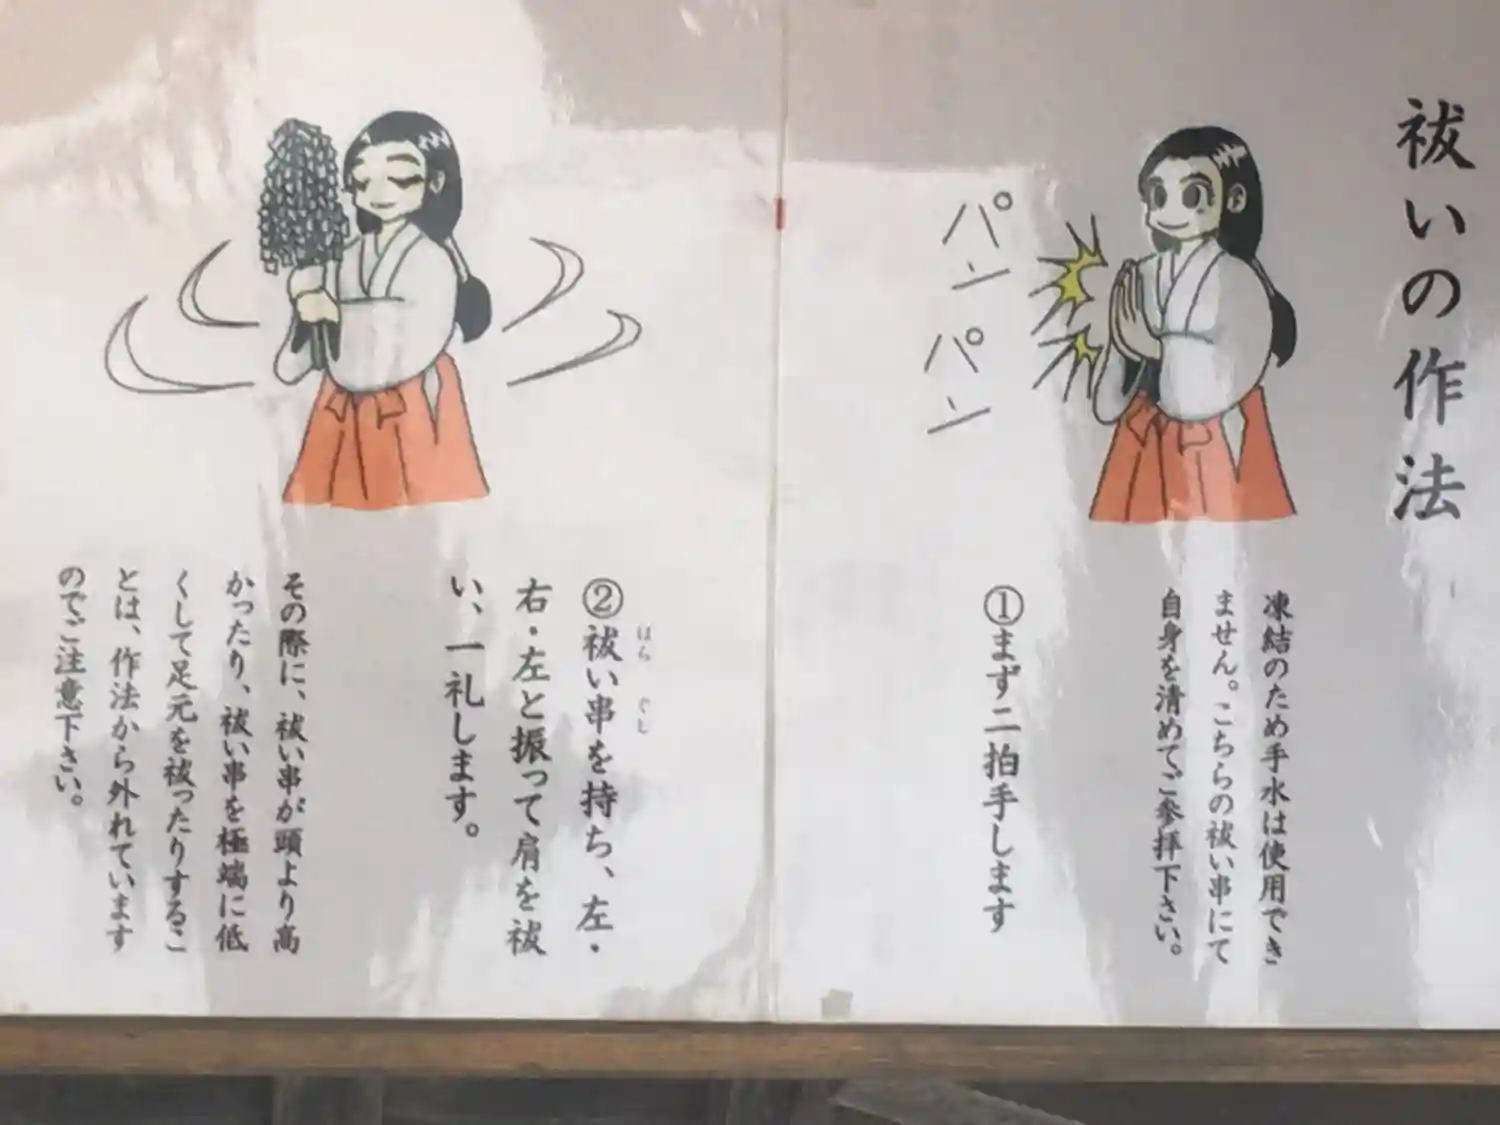 祓いの作法
凍結のため手水は使用でき
ません。こちらの祓い串にて
自身を清めてご参拝下さい。
①まず二拍手します
パン
パン
②祓い串を持ち、左・
はら ぐし
右・左と振って肩を祓
い、一礼します。
その際に、祓い串が頭より高
かったり、祓い串を極端に低
くして足元を祓ったりするこ
とは、作法から外れています
のでご注意下さい。